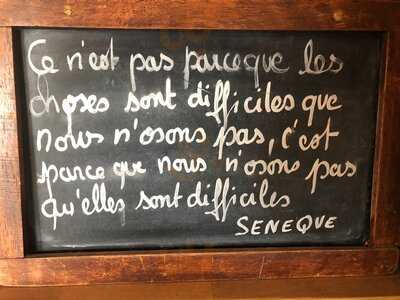 Ce n'est pas parce que les
choses sont difficiles que
nous n'osons pas, c'est
parce que nous n'osons pas
qu'elles sont difficiles
SENEQUE